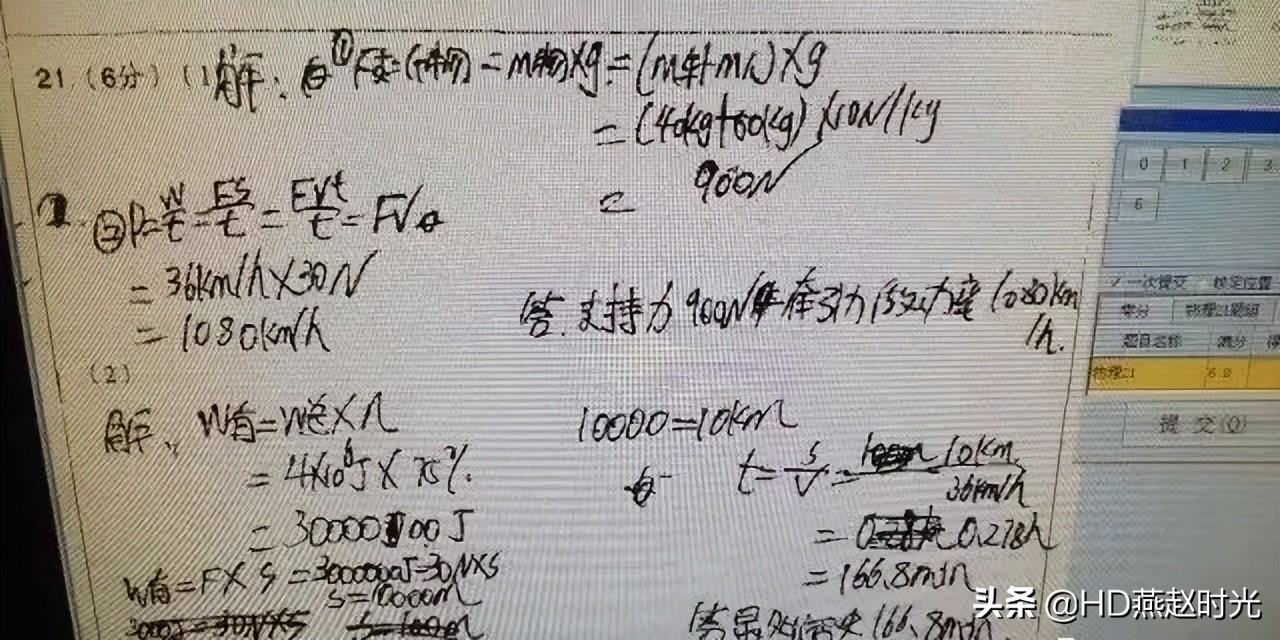 21.(6分)(1)解:①F支=G=m×g=(m车+m人)×g
=(40kg+50kg)×10N/kg
= 900N
②P=W/t=Fs/t=Fvt/t=Fv
=36km/h×30N
=1080km/h
答:支持力900N牵引力的功率1080km
/h.
(2)
解:W有=W总×η
=4×10⁶J×75%
=3000000J
W有=F×S=3000000J=30N×S
S=10000m
10000=10km
t=s/v=10km/36km/h
=0.278h
=166.8min
166.8min
0 1 2 3
6
一次提交
物理21题组
题目名称 满分 得
物理21 6.0
提 交(Q)
头条 @HD燕赵时光